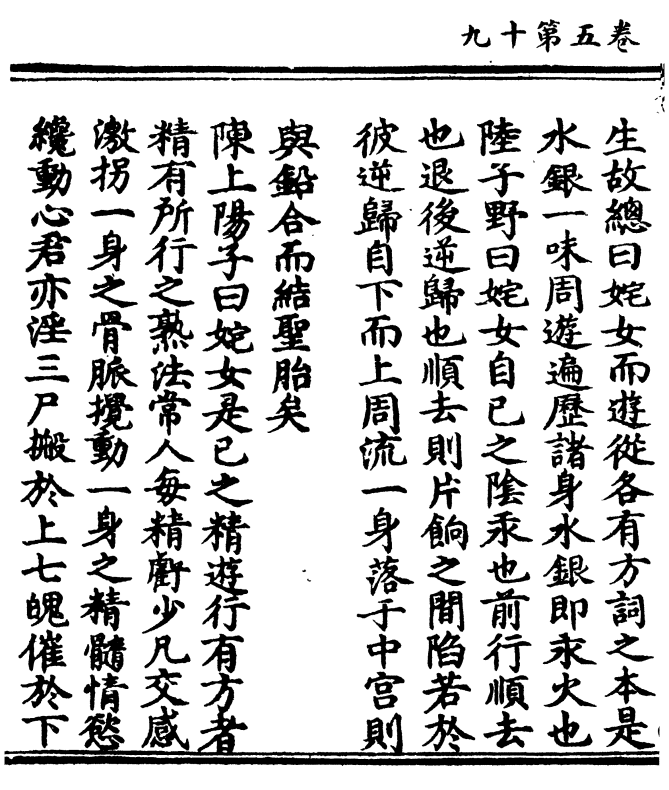 九十第五卷
生故總曰姹女而遊從各有方詞之本是
水銀一味周遊遍歷諸身水銀即汞火也
陸子野曰姹女自己之陰汞也前行順去
也退後逆歸也順去則片餉之間陷若於
彼逆歸自下而上周流一身落于中宮則
與鉛合而結聖胎矣
陳上陽子曰姹女是已之精遊行有方者
精有所行之熟法常人每精虧少凡交感
激拐一身之骨脈攪動一身之精髓情慾
纔動心君亦淫三尸搬於上七魄催於下